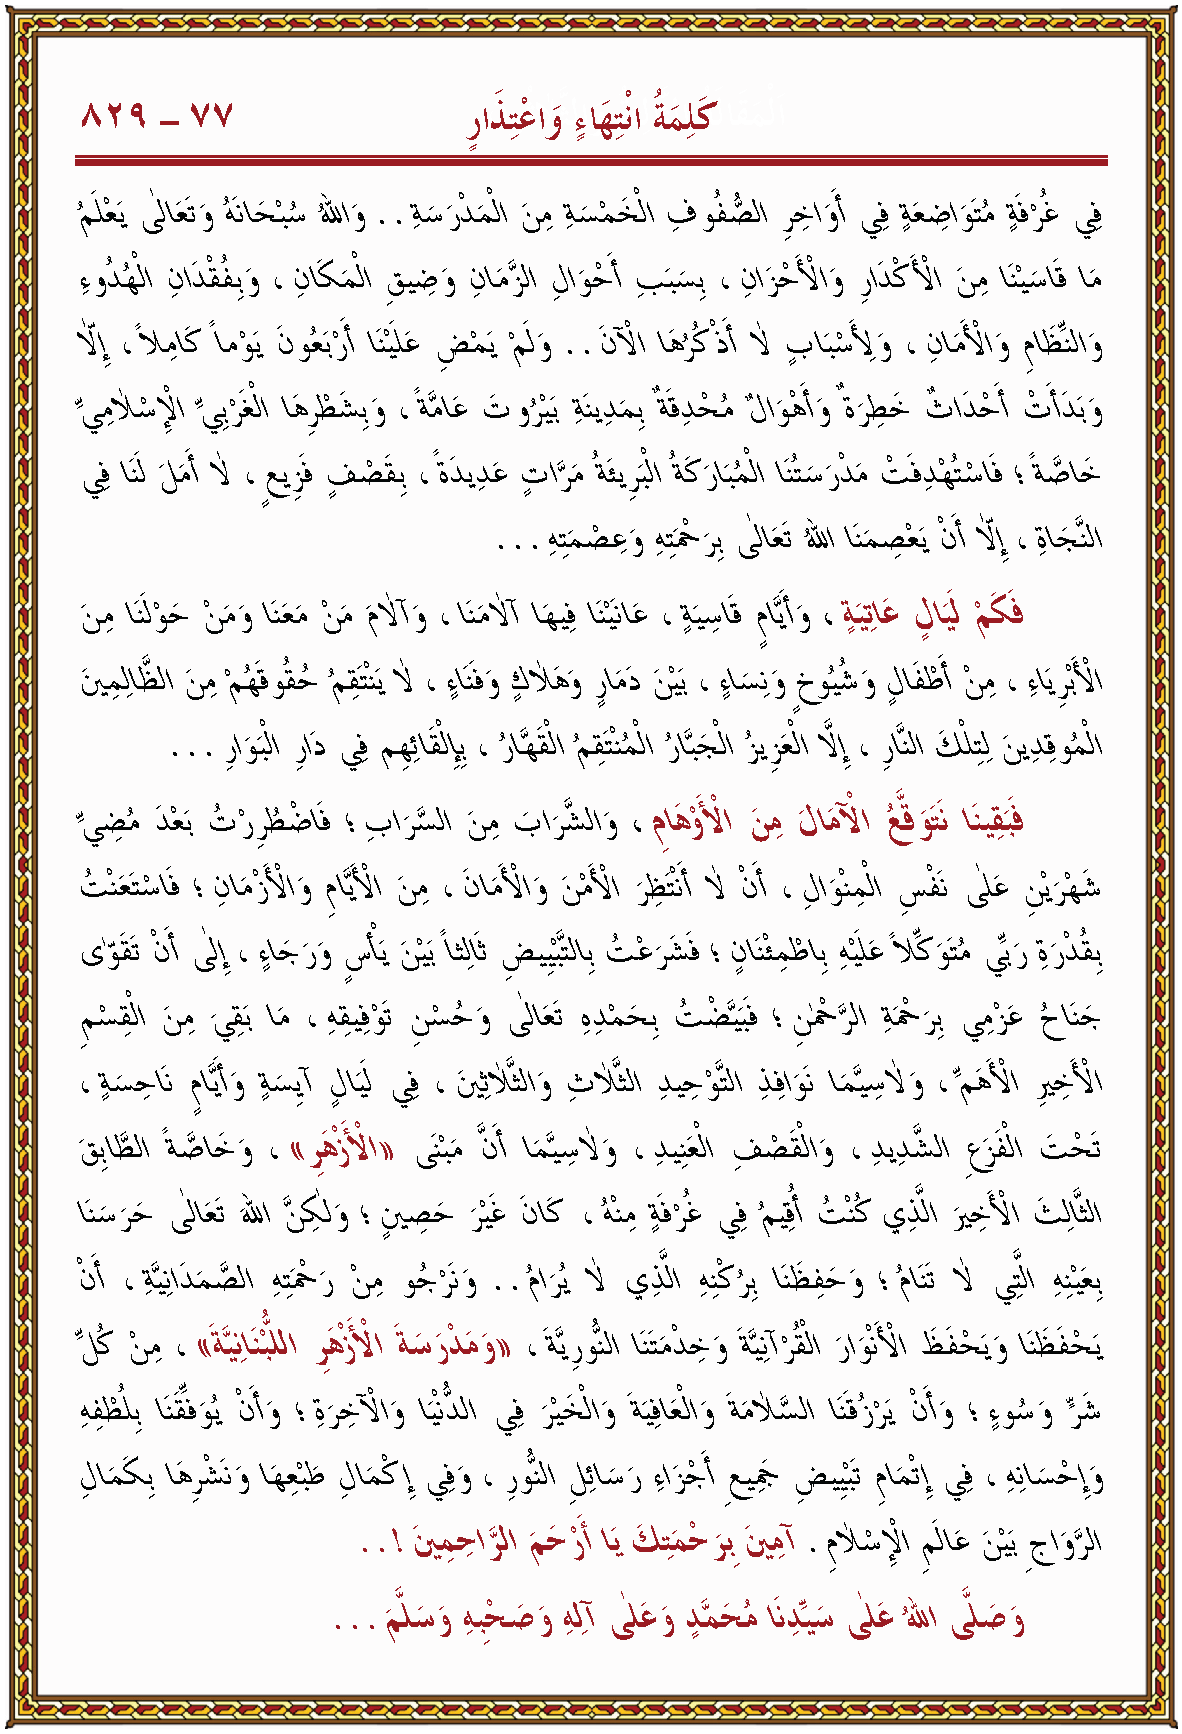 كَلِمَةُ انْتِهَاءٍ وَاعْتِذَارٍ ٧٧ ـ ٨٢٩
فِي غُرْفَةٍ مُتَوَاضِعَةٍ فِي أَوَاخِرِ الصُّفُوفِ الْخَمْسَةِ مِنَ الْمَدْرَسَةِ . . وَاللهُ سُبْحَانَهُ وَتَعَالٰى يَعْلَمُ
مَا قَاسَيْنَا مِنَ الْأَكْدَارِ وَالْأَحْزَانِ ، بِسَبَبِ أَحْوَالِ الزَّمَانِ وَضِيقِ الْمَكَانِ ، وَبِفُقْدَانِ الْهُدُوءِ
وَالنِّظَامِ وَالْأَمَانِ ، وَلِأَسْبَابٍ لاٰ أَذْكُرُهَا الْآنَ . . وَلَمْ يَمْضِ عَلَيْنَا أَرْبَعُونَ يَوْماً كَامِلاً ، إِلاّٰ
وَبَدَأَتْ أَحْدَاثٌ خَطِرَةٌ وَأَهْوَالٌ مُحْدِقَةٌ بِمَدِينَةِ بَيْرُوتَ عَامَّةً ، وَبِشَطْرِهَا الْغَرْبِيِّ الْإِسْلاٰمِيِّ
خَاصَّةً ؛ فَاسْتُهْدِفَتْ مَدْرَسَتُنَا الْمُبَارَكَةُ الْبَرِيئَةُ مَرَّاتٍ عَدِيدَةً ، بِقَصْفٍ فَزِيعٍ ، لاٰ أَمَلَ لَنَا فِي
النَّجَاةِ ، إِلاّٰ أَنْ يَعْصِمَنَا اللهُ تَعَالٰى بِرَحْمَتِهِ وَعِصْمَتِهِ . . .
فَكَمْ لَيَالٍ عَاتِيَةٍ ، وَأَيَّامٍ قَاسِيَةٍ ، عَانَيْنَا فِيهَا آلاٰمَنَا ، وَآلاٰمَ مَنْ مَعَنَا وَمَنْ حَوْلَنَا مِنَ
الْأَبْرِيَاءِ ، مِنْ أَطْفَالٍ وَشُيُوخٍ وَنِسَاءٍ ، بَيْنَ دَمَارٍ وَهَلاٰكٍ وَفَنَاءٍ ، لاٰ يَنْتَقِمُ حُقُوقَهُمْ مِنَ الظَّالِمِينَ
الْمُوقِدِينَ لِتِلْكَ النَّارِ ، إِلاَّ الْعَزِيزُ الْجَبَّارُ الْمُنْتَقِمُ الْقَهَّارُ ، بِإِلْقَائِهِمْ فِي دَارِ الْبَوَارِ . . .
فَبَقِينَا نَتَوَقَّعُ الْآمَالَ مِنَ الْأَوْهَامِ ، وَالشَّرَابَ مِنَ السَّرَابِ ؛ فَاضْطُرِرْتُ بَعْدَ مُضِيِّ
شَهْرَيْنِ عَلٰى نَفْسِ الْمِنْوَالِ ، أَنْ لاٰ أَنْتَظِرَ الْأَمْنَ وَالْأَمَانَ ، مِنَ الْأَيَّامِ وَالْأَزْمَانِ ؛ فَاسْتَعَنْتُ
بِقُدْرَةِ رَبِّي مُتَوَكِّلاً عَلَيْهِ بِاطْمِئْنَانٍ ؛ فَشَرَعْتُ بِالتَّبْيِيضِ ثَالِثاً بَيْنَ يَأْسٍ وَرَجَاءٍ ، إِلٰى أَنْ تَقَوّٰى
جَنَاحُ عَزْمِي بِرَحْمَةِ الرَّحْمٰنِ ؛ فَبَيَّضْتُ بِحَمْدِهِ تَعَالٰى وَحُسْنِ تَوْفِيقِهِ ، مَا بَقِيَ مِنَ الْقِسْمِ
الْأَخِيرِ الْأَهَمِّ ، وَلاٰسِيَّمَا نَوَافِذِ التَّوْحِيدِ الثَّلاٰثِ وَالثَّلاٰثِينَ ، فِي لَيَالٍ آيِسَةٍ وَأَيَّامٍ نَاحِسَةٍ ،
تَحْتَ الْفَزَعِ الشَّدِيدِ ، وَالْقَصْفِ الْعَنِيدِ ، وَلاٰسِيَّمَا أَنَّ مَبْنَى «الْأَزْهَرِ» ، وَخَاصَّةً الطَّابِقَ
الثَّالِثَ الْأَخِيرَ الَّذِي كُنْتُ أُقِيمُ فِي غُرْفَةٍ مِنْهُ ، كَانَ غَيْرَ حَصِينٍ ؛ وَلٰكِنَّ اللهَ تَعَالٰى حَرَسَنَا
بِعَيْنِهِ الَّتِي لاٰ تَنَامُ ؛ وَحَفِظَنَا بِرُكْنِهِ الَّذِي لاٰ يُرَامُ . . وَنَرْجُو مِنْ رَحْمَتِهِ الصَّمَدَانِيَّةِ ، أَنْ
يَحْفَظَنَا وَيَحْفَظَ الْأَنْوَارَ الْقُرْآنِيَّةَ وَخِدْمَتَنَا النُّورِيَّةَ ، «وَمَدْرَسَةَ الْأَزْهَرِ اللُّبْنَانِيَّةَ» ، مِنْ كُلِّ
شَرٍّ وَسُوءٍ ؛ وَأَنْ يَرْزُقَنَا السَّلاٰمَةَ وَالْعَافِيَةَ وَالْخَيْرَ فِي الدُّنْيَا وَالْآخِرَةِ ؛ وَأَنْ يُوَفِّقَنَا بِلُطْفِهِ
وَإِحْسَانِهِ ، فِي إِتْمَامِ تَبْيِيضِ جَمِيعِ أَجْزَاءِ رَسَائِلِ النُّورِ ، وَفِي إِكْمَالِ طَبْعِهَا وَنَشْرِهَا بِكَمَالِ
الرَّوَاجِ بَيْنَ عَالَمِ الْإِسْلاٰمِ . آمِينَ بِرَحْمَتِكَ يَا أَرْحَمَ الرَّاحِمِينَ ! . .
وَصَلَّى اللهُ عَلٰى سَيِّدِنَا مُحَمَّدٍ وَعَلٰى آلِهِ وَصَحْبِهِ وَسَلَّمَ . . .